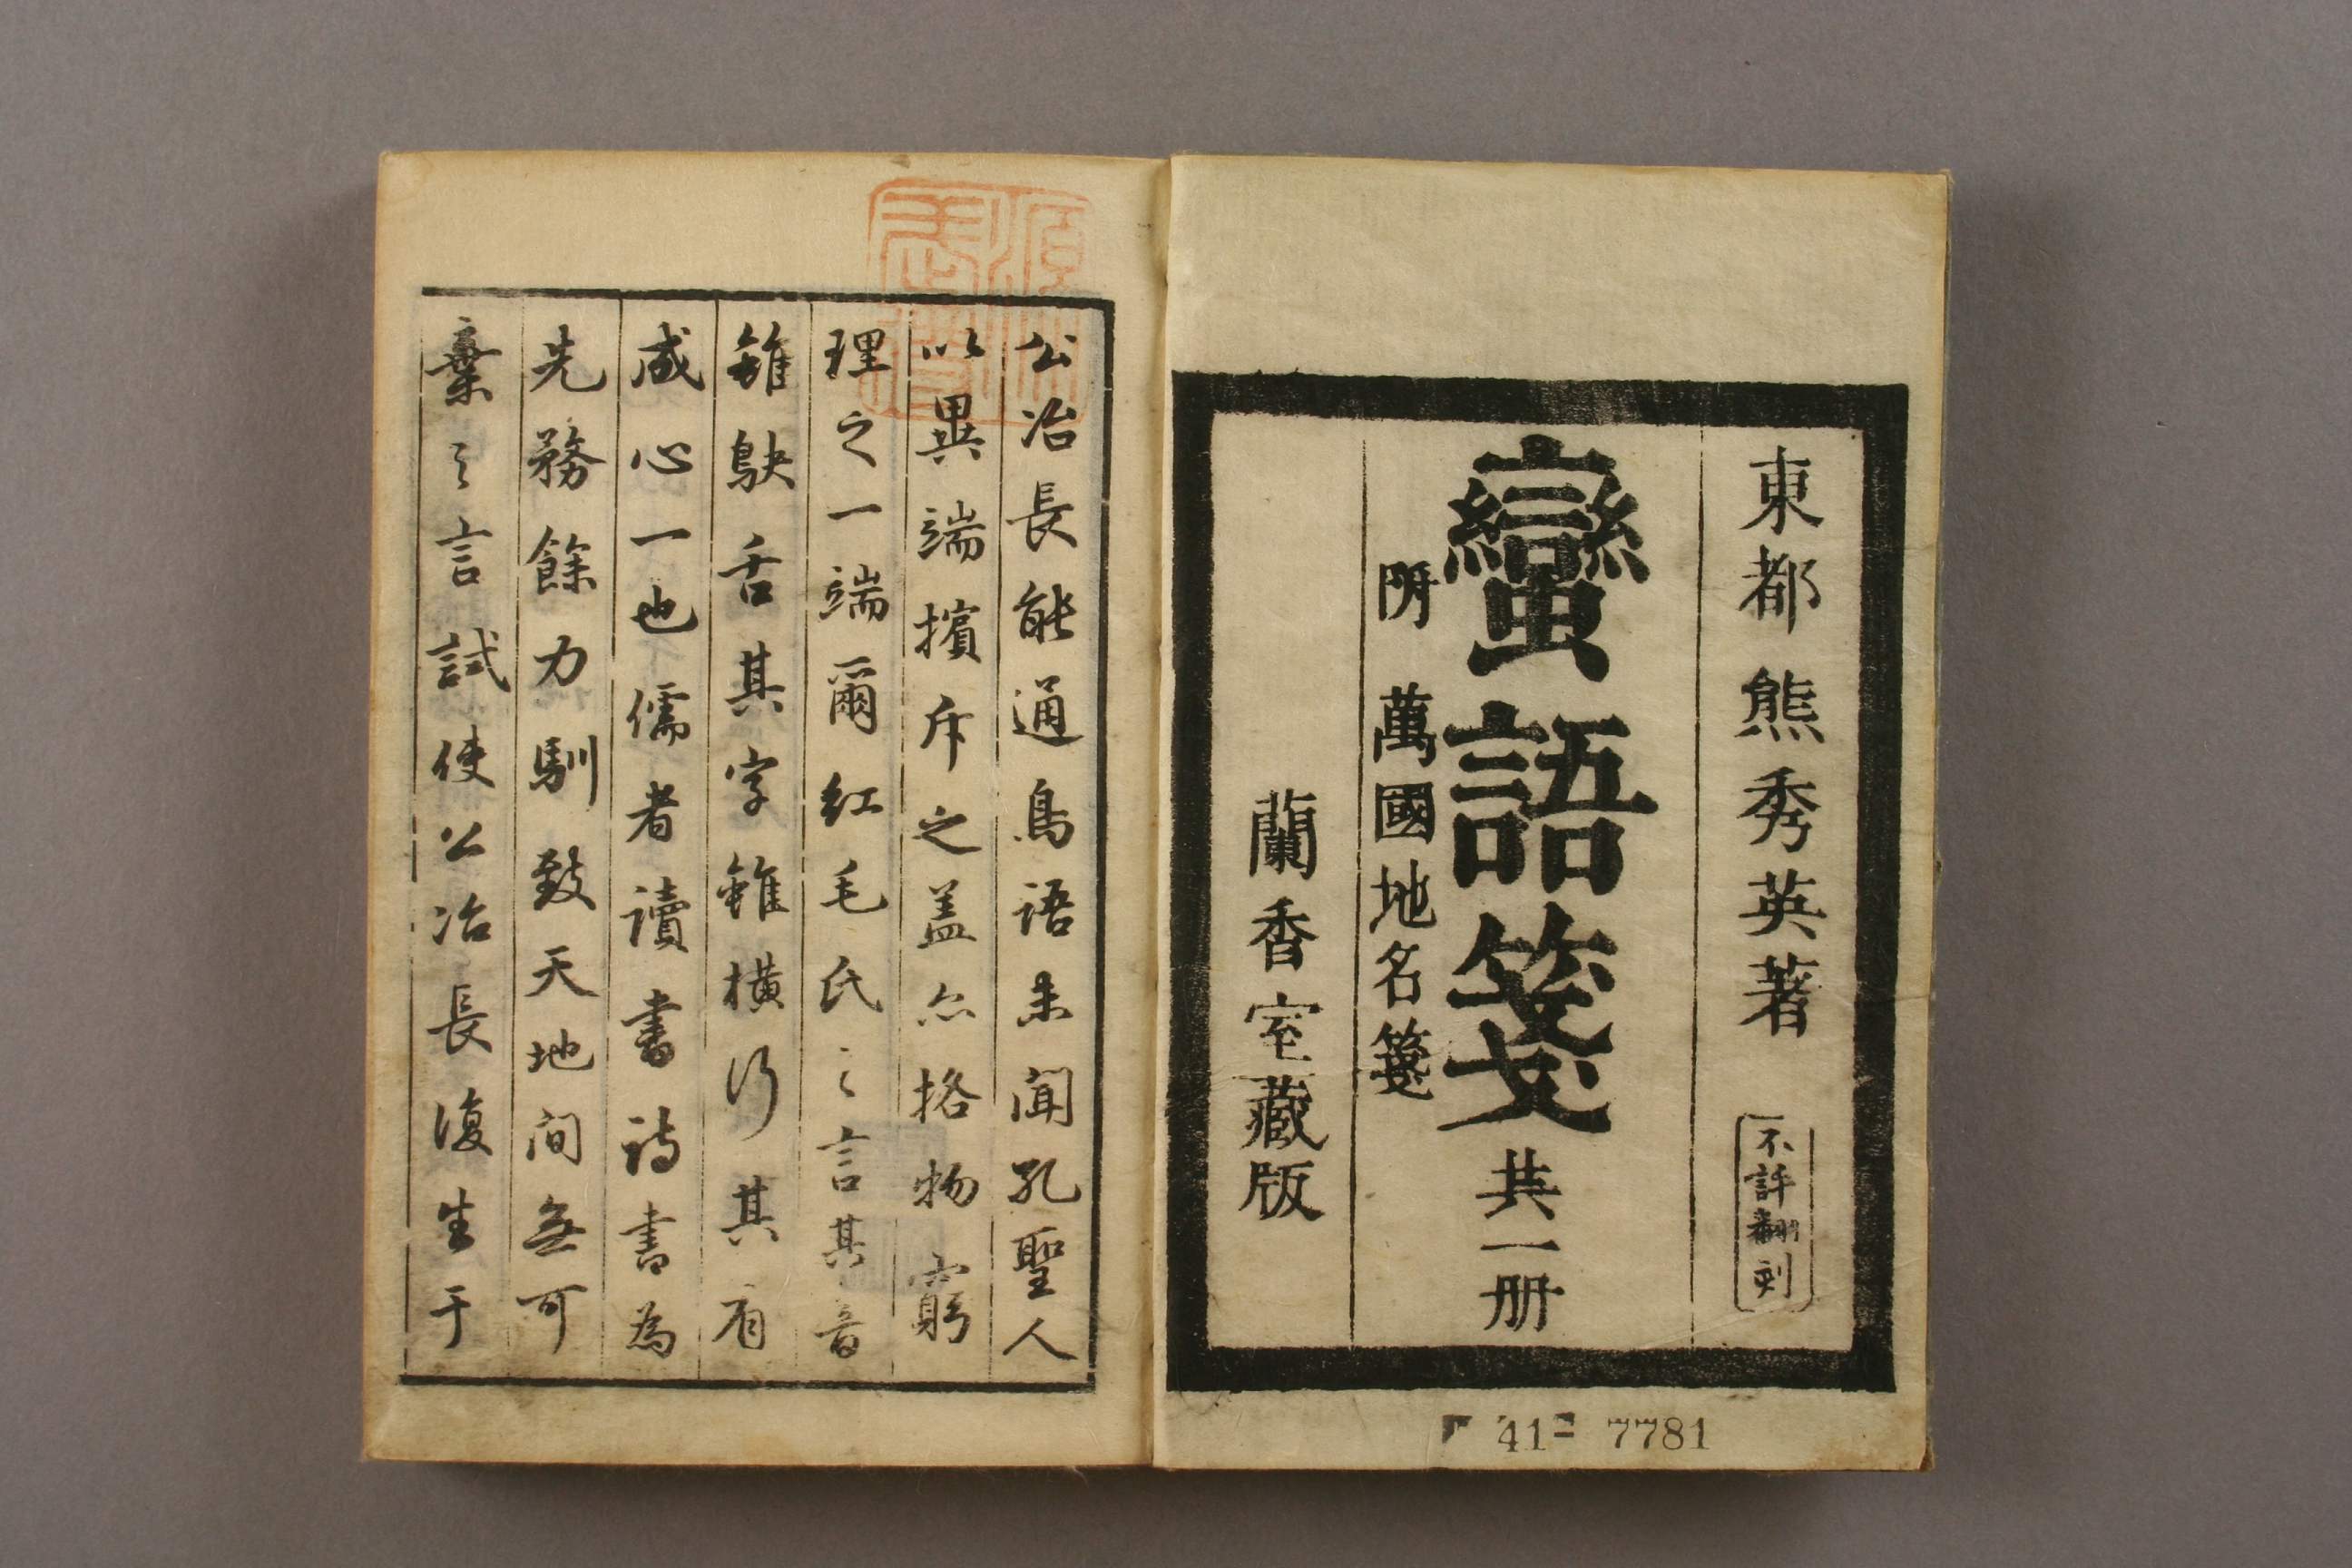 東都 熊秀英著
不許翻刻
蠻語箋 共一册
附 萬國地名箋
蘭香室藏版
41- 7781
公冶長能通鳥語未聞孔聖人
以異端擯斥之盖亦格物窮
理之一端爾紅毛氏之言其音
雖鴃舌其字雖橫行其有
咸心一也儒者讀書詩書為
先務餘力馴致天地间無可
棄之言試使公冶長復生于